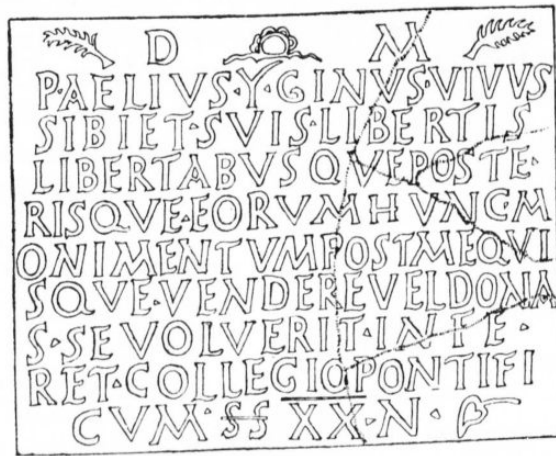 D M
P·AELIVS·Y·GINVS·VIVVS
SIBIET·SVIS·LIBERTIS
LIBERTABVSQVEPOSTE·
RISQVE·EORVMHVNC·M
ONIMENTVMPOSTMEQVI
SQVE·VENDEREVELDONA
S·SEVOLVERIT·INFE·
RET·COLLEGIOPONTIFI
CVM·SS XX·N·